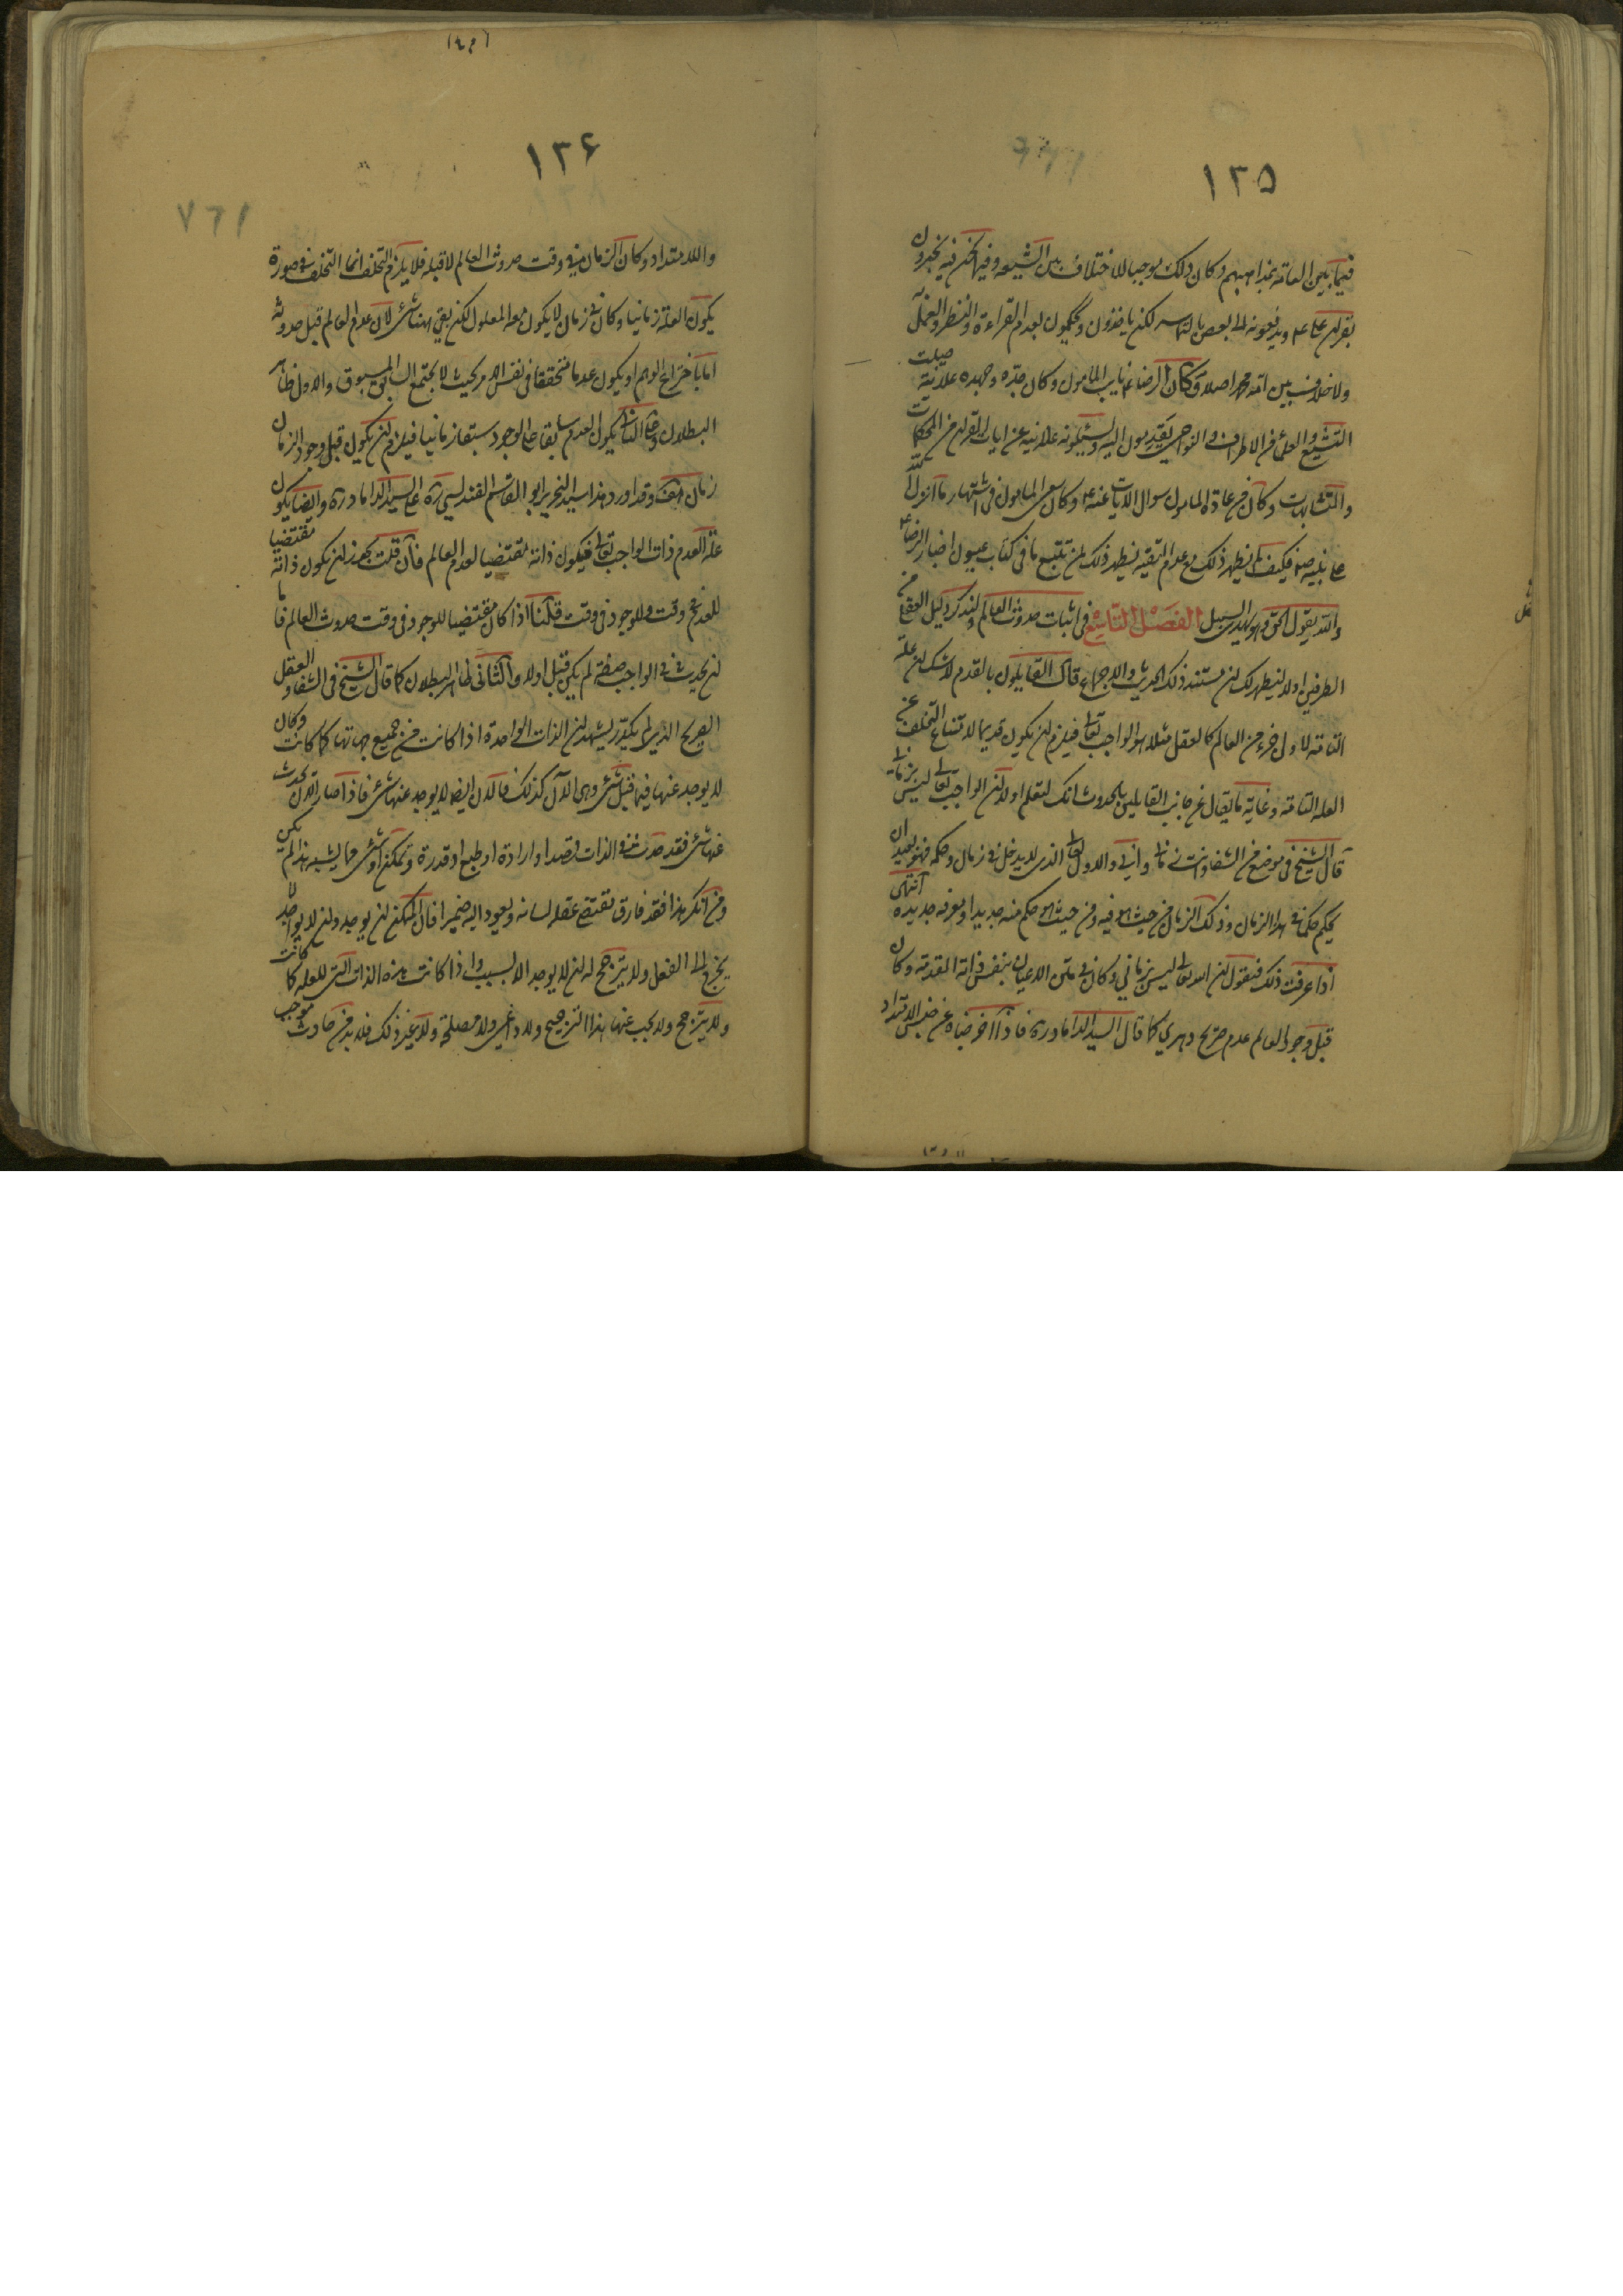 ١٢٥
فيما بين العامة بمذاهبهم وكان ذلك موجبا للاختلاف بين الشيعة وفيما نحن فيه يخبرون
بقران على ع ويدفعونه الى بعض بالتماس لكن يأخذون ويحكمون لعدم القراءة والنظر والعمل به
ولا خلاف بين امة محمد اصلا وكان الرضا ع نايب المامون وكان جده وجهده علانية صيت
التشيع والعلماء من الاطراف والنواحى يصلون اليه ويسئلونه علانية عن ايات القران من المحكمات
والمتشابهات وكان من عادة المامون سوال الايات عنه ع وكان سعى المامون فى اشتهار ما انزل الله
على نبيه ص فكيف لم يظهر ذلك مع عدم التقية يظهر ذلك لمن تتبع ما فى كتاب عيون اخبار الرضا ع
والله يقول الحق وهو يهدى السبيل الفصل التاسع فى اثبات حدوث العالم ولنذكر دليل العقل من
الطرفين اولا ليظهر لك ان مستند ذلك الحديث والاجماع قال القايلون بالقدم لا شك ان علة
التامة لاول جزء من العالم كالعقل مثلا هو الواجب تعالى فيلزم ان يكون قديما لامتناع التخلف عن
العلة التامة وغاية ما يقال من جانب القايلين بالحدوث انك لتعلم اولا ان الواجب تعالى ليس بزمانى
قال الشيخ فى موضع من الشفاء وانت زمانى وانى والاول تعالى الذى لا يدخل فى زمان وحكمه فهو بعيد ان
يحكم حكما فى هذا الزمان وذلك الزمان من حيث هو فيه ومن حيث هو حكم منه جديد او معرفة جديدة انتهى
اذا عرفت ذلك فنقول ان الله تعالى ليس بزمانى وكان فى متن الاعيان بنفس ذاته المقدسة وكان
قبل وجود العالم عدم صريح دهرى كما قال السيد الداماد ره فاذا اخرجناه عن جنس الامتداد
١٢۶
واللاامتداد وكان الزمان فى وقت حدوث العالم لا قبله فلا يلزم التخلف انما التخلف فى صورة
يكون العلة زمانيا وكان فى زمان لا يكون معه المعلول لكن بقى هنا شىء لان عدم العالم قبل حدوثه
اما باختراع الوهم او يكون عدما متحققا فى نفس الامر بحيث لا يجتمع السابق المسبوق والاول ظاهر
البطلان وعلى الثانى يكون العدم سابقا على الوجود سبقا زمانيا فيلزم ان يكون قبل وجود الزمان
زمان هف وقد اورد هذا سيد النحرير ابو القاسم الفندرسى ره على السيد الداماد ره وايضا يكون
علة العدم ذات الواجب تعالى فيكون ذاته مقتضيا لعدم العالم فان قلت يجوز ان يكون ذاته مقتضيا
للعدم فى وقت وللوجود فى وقت قلنا اذا كان مقتضيا للوجود فى وقت حدوث العالم فاما
ان يحدث فى الواجب صفة لم يكن قبل او لا والثانى ظاهر البطلان كما قال الشيخ فى الشفاء والعقل
الصريح الذى لم يكدر يشهد ان الذات الواحدة اذا كانت من جميع جهاتها كما كانت وكان
لا يوجد عنها فيما قبل شىء وهى الآن كذلك فالان ايضا لا يوجد عنها شىء فاذا صار الان يحدث
عنها شىء فقد حدث فى الذات قصد او ارادة او طبع او قدرة وتمكن او شىء مما يشبه هذا لم يكن
ومن انكر هذا فقد فارق مقتضى عقله لسانه ويعود اليه ضميرا فان الممكن ان يوجد وان لا يوجد لا
يخرج الى الفعل ولا يترجح له ان لا يوجد الا بسبب واذا كانت هذه الذات التى للعلة كما كانت
ولا يترجح ولا يجب عنها هذا الترجيح ولا داعى ولا مصلحة ولا غير ذلك فلا بد من حادث موجب